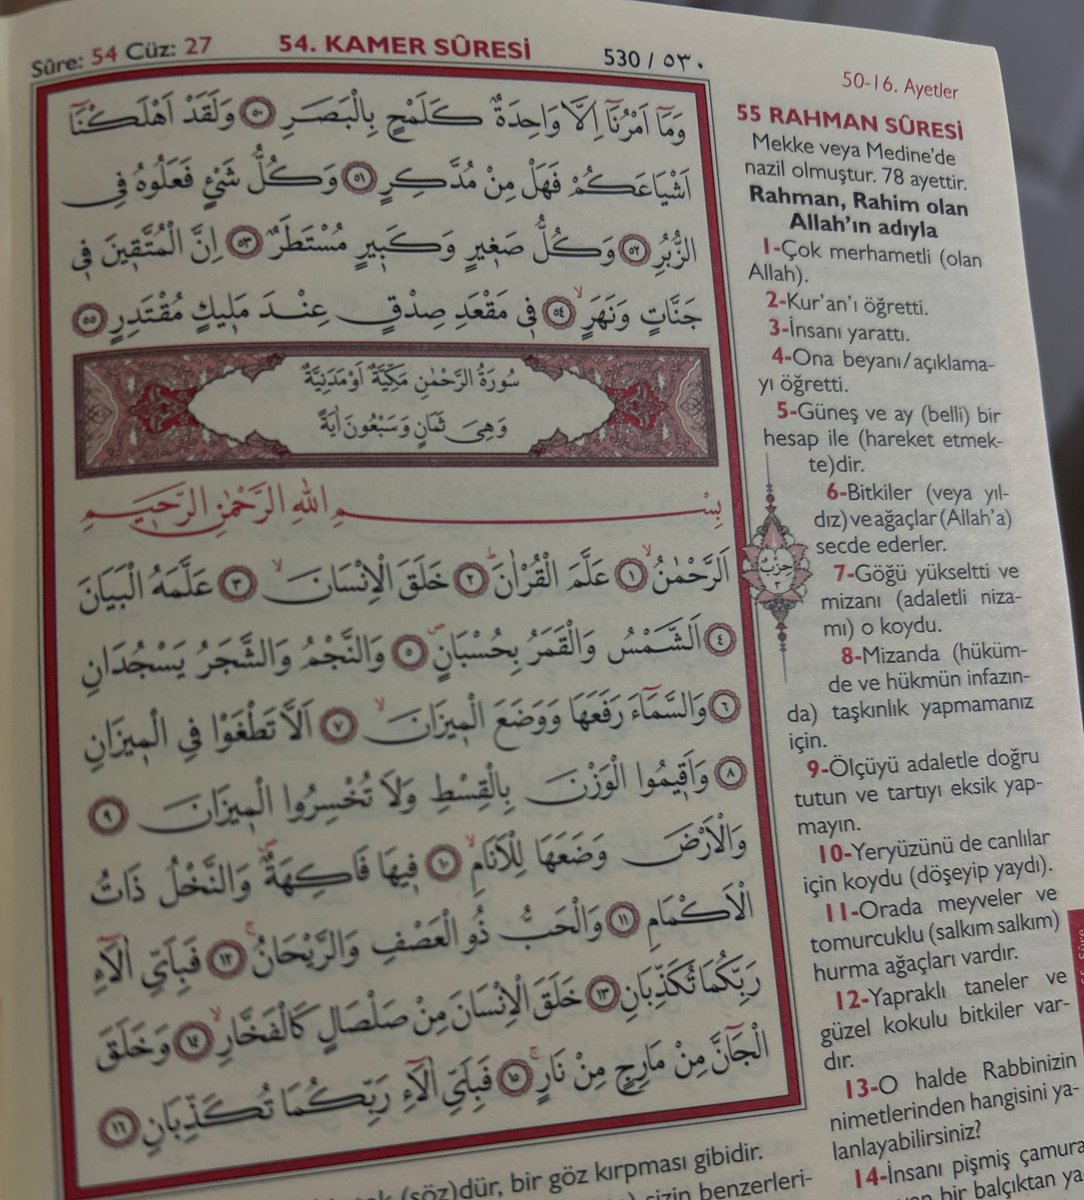 Sûre: 54 Cüz: 27
54. KAMER SÛRESİ
530 / ٥٣٠
وَمَٓا اَمْرُنَٓا اِلَّا وَاحِدَةٌ كَلَمْحٍ بِالْبَصَرِ ﴿٥٠﴾ وَلَقَدْ اَهْلَكْنَٓا
اَشْيَاعَكُمْ فَهَلْ مِنْ مُدَّكِرٍ ﴿٥١﴾ وَكُلُّ شَيْءٍ فَعَلُوهُ فِي
الزُّبُرِ ﴿٥٢﴾ وَكُلُّ صَغٖيرٍ وَكَبٖيرٍ مُسْتَطَرٌ ﴿٥٣﴾ اِنَّ الْمُتَّقٖينَ فٖي
جَنَّاتٍ وَنَهَرٍۙ ﴿٥٤﴾ فٖي مَقْعَدِ صِدْقٍ عِنْدَ مَلٖيكٍ مُقْتَدِرٍ ﴿٥٥﴾
سُورَةُ الرَّحْمٰنِ مَكِّيَّةٌ اَوْ مَدَنِيَّةٌ
وَهِيَ ثَمَانٍ وَسَبْعُونَ اٰيَةً
بِسْمِ اللهِ الرَّحْمٰنِ الرَّحٖيمِ
اَلرَّحْمٰنُۙ ﴿١﴾ عَلَّمَ الْقُرْاٰنَۜ ﴿٢﴾ خَلَقَ الْاِنْسَانَۙ ﴿٣﴾ عَلَّمَهُ الْبَيَانَ
﴿٤﴾ اَلشَّمْسُ وَالْقَمَرُ بِحُسْبَانٍۖ ﴿٥﴾ وَالنَّجْمُ وَالشَّجَرُ يَسْجُدَانِ
﴿٦﴾ وَالسَّمَٓاءَ رَفَعَهَا وَوَضَعَ الْمٖيزَانَۙ ﴿٧﴾ اَلَّا تَطْغَوْا فِي الْمٖيزَانِ
﴿٨﴾ وَاَقٖيمُوا الْوَزْنَ بِالْقِسْطِ وَلَا تُخْسِرُوا الْمٖيزَانَ ﴿٩﴾
وَالْاَرْضَ وَضَعَهَا لِلْاَنَامِۙ ﴿١٠﴾ فٖيهَا فَاكِهَةٌۖ وَالنَّخْلُ ذَاتُ
الْاَكْمَامِ ﴿١١﴾ وَالْحَبُّ ذُو الْعَصْفِ وَالرَّيْحَانُۚ ﴿١٢﴾ فَبِاَيِّ اٰلَٓاءِ
رَبِّكُمَا تُكَذِّبَانِ ﴿١٣﴾ خَلَقَ الْاِنْسَانَ مِنْ صَلْصَالٍ كَالْفَخَّارِۙ ﴿١٤﴾ وَخَلَقَ
الْجَٓانَّ مِنْ مَارِجٍ مِنْ نَارٍۚ ﴿١٥﴾ فَبِاَيِّ اٰلَٓاءِ رَبِّكُمَا تُكَذِّبَانِ ﴿١٦﴾
حِزْبٌ
٢
50-16. Ayetler
55 RAHMAN SÛRESİ
Mekke veya Medine'de
nazil olmuştur. 78 ayettir.
Rahman, Rahim olan
Allah'ın adıyla
1-Çok merhametli (olan
Allah).
2-Kur'an'ı öğretti.
3-İnsanı yarattı.
4-Ona beyanı/açıklama-
yı öğretti.
5-Güneş ve ay (belli) bir
hesap ile (hareket etmek-
te)dir.
6-Bitkiler (veya yıl-
dız) ve ağaçlar (Allah'a)
secde ederler.
7-Göğü yükseltti ve
mizanı (adaletli niza-
mı) o koydu.
8-Mizanda (hüküm-
de ve hükmün infazın-
da) taşkınlık yapmamanız
için.
9-Ölçüyü adaletle doğru
tutun ve tartıyı eksik yap-
mayın.
10-Yeryüzünü de canlılar
için koydu (döşeyip yaydı).
11-Orada meyveler ve
tomurcuklu (salkım salkım)
hurma ağaçları vardır.
12-Yapraklı taneler ve
güzel kokulu bitkiler var-
dır.
13-O halde Rabbinizin
nimetlerinden hangisini ya-
lanlayabilirsiniz?
14-İnsanı pişmiş çamura
bir balçıktan ya-
(söz)dür, bir göz kırpması gibidir.
sizin benzerleri-